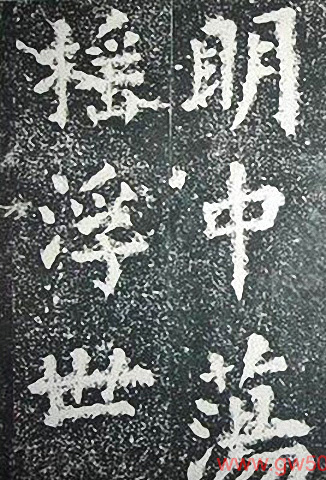 明中蕩
搖浮世
www.gw50